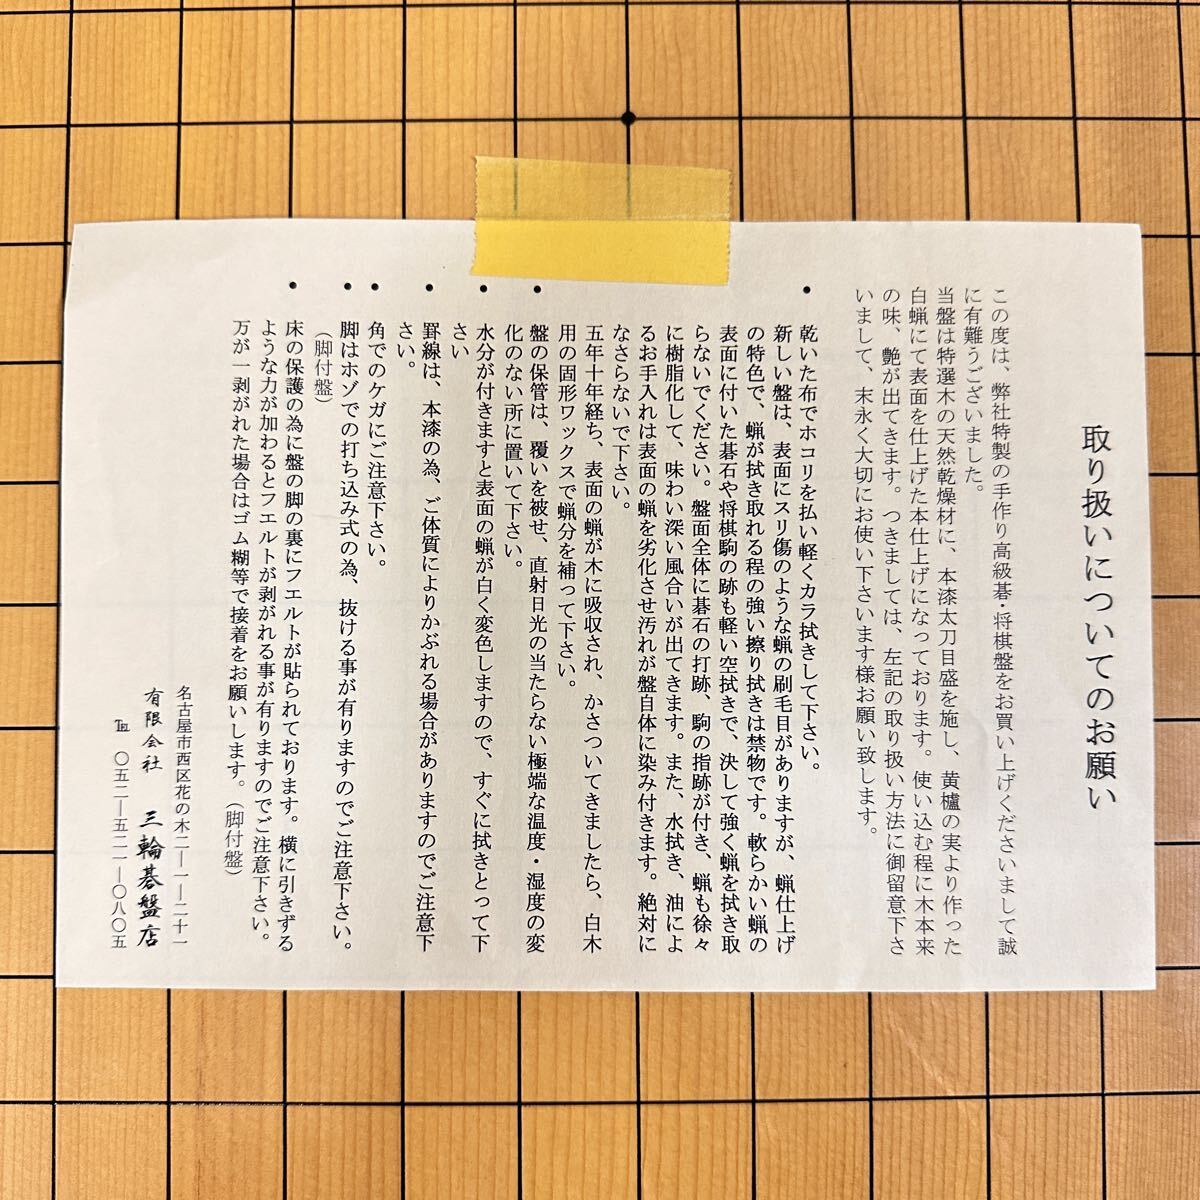 取り扱いについてのお願い
この度は、弊社特製の手作り高級碁・将棋盤をお買い上げくださいまして誠
に有難うございました。
当盤は特選木の天然乾燥材に、本漆太刀目盛を施し、黄櫨の実より作った
白蝋にて表面を仕上げた本仕上げになっております。使い込む程に木本来
の味、艶が出てきます。つきましては、左記の取り扱い方法に御留意下さ
いまして、末永く大切にお使い下さいます様お願い致します。
・乾いた布でホコリを払い軽くカラ拭きして下さい。
新しい盤は、表面にスリ傷のような蝋の刷毛目がありますが、蝋仕上げ
の特色で、蝋が拭き取れる程の強い擦り拭きは禁物です。軟らかい蝋の
表面に付いた碁石や将棋駒の跡も軽い空拭きで、決して強く蝋を拭き取
らないでください。盤面全体に碁石の打跡、駒の指跡が付き、蝋も徐々
に樹脂化して、味わい深い風合いが出てきます。また、水拭き、油によ
るお手入れは表面の蝋を劣化させ汚れが盤自体に染み付きます。絶対に
なさらないで下さい。
五年十年経ち、表面の蝋が木に吸収され、かさついてきましたら、白木
用の固形ワックスで蝋分を補って下さい。
・盤の保管は、覆いを被せ、直射日光の当たらない極端な温度・湿度の変
化のない所に置いて下さい。
・水分が付きますと表面の蝋が白く変色しますので、すぐに拭きとって下
さい
・罫線は、本漆の為、ご体質によりかぶれる場合がありますのでご注意下
さい。
・角でのケガにご注意下さい。
・脚はホゾでの打ち込み式の為、抜ける事が有りますのでご注意下さい。
（脚付盤）
・床の保護の為に盤の脚の裏にフエルトが貼られております。横に引きずる
ような力が加わるとフエルトが剥がれる事が有りますのでご注意下さい。
万が一剥がれた場合はゴム糊等で接着をお願いします。（脚付盤）
名古屋市西区花の木二―一―二十一
有限会社 三輪碁盤店
℡ 〇五二―五二一―〇八〇五